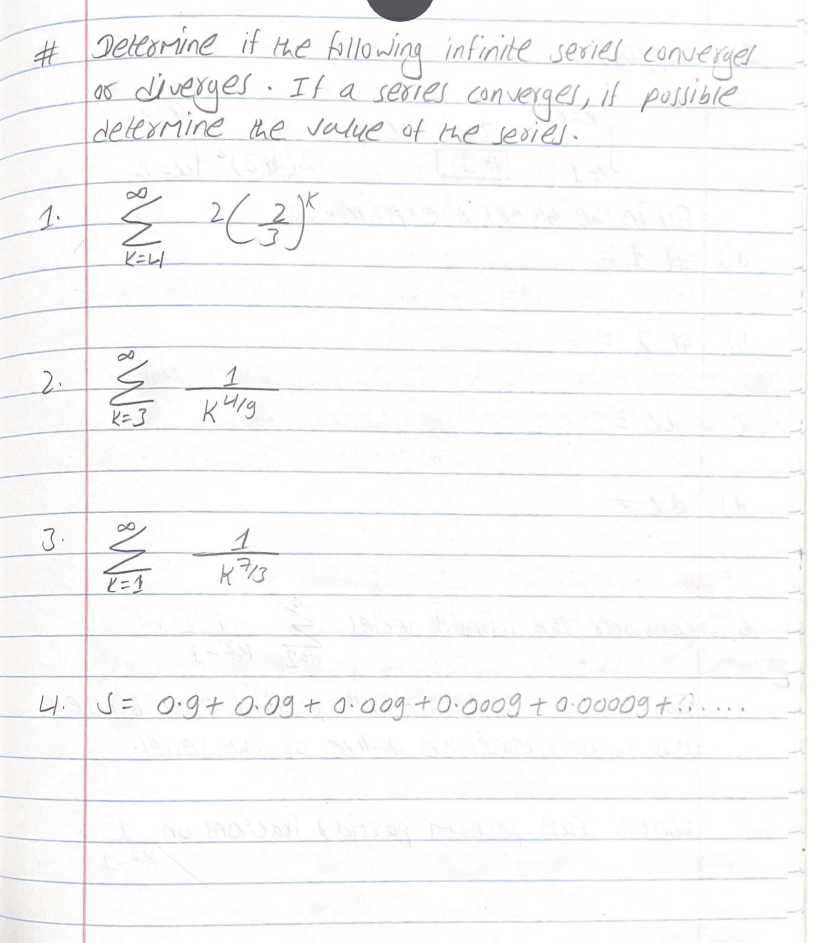 # Determine if the following infinite series converges
or diverges. If a series converges, if possible
determine the value of the series.
1. ∞ Σ K=4 2(2/3)^K
2. ∞ Σ K=3 1/K^4/9
3. ∞ Σ K=1 1/K^7/3
4. S= 0.9+ 0.09+ 0.009+0.0009+0.00009+.....